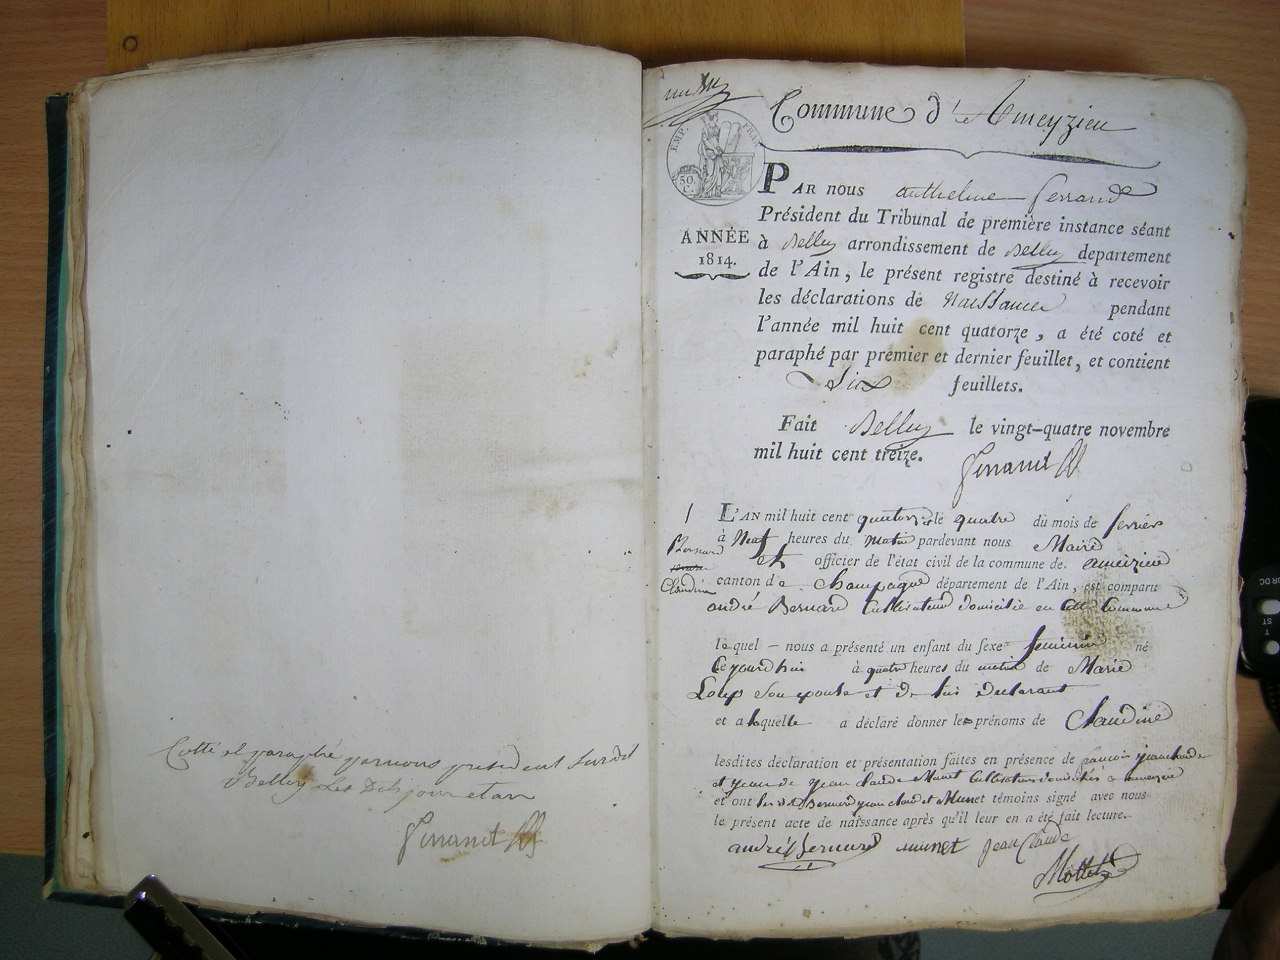 Cotté et paraphé par nous president susdit
Belley les dits jour et an
Ferrand
Commune d'Ameyzieu
EMP. FRAN
50 C.
ANNÉE
1814.
PAR NOUS Anthelme Ferrand
Président du Tribunal de première instance séant
à Belley arrondissement de Belley departement
de l'Ain, le présent registre destiné à recevoir
les déclarations de Naissance pendant
l'année mil huit cent quatorze, a été coté et
paraphé par premier et dernier feuillet, et contient
Six feuillets.
Fait Belley le vingt-quatre novembre
mil huit cent treize.
Ferrand
1
Bernard
Claudine
L'AN mil huit cent quatorze le quatre du mois de fevrier
à Neuf heures du matin pardevant nous Maire
et officier de l'état civil de la commune de ameizieu
canton de Champagne département de l'Ain, est comparu
andré Bernard Cultivateur domicilié en cette Commune
lequel nous a présenté un enfant du sexe feminin né
Cejourdhui à quatre heures du matin de Marie
Loup son epouse et de lui declarant
et a laquelle a déclaré donner le prénoms de Claudine
lesdites déclaration et présentation faites en présence de
et de jean claude Munet Cultivateurs domiciliés a ameizieu
et ont Bernard jean claude et Munet témoins signé avec nous
le présent acte de naissance après qu'il leur en a été fait lecture.
andré Bernard munet jean Claude
Mollet